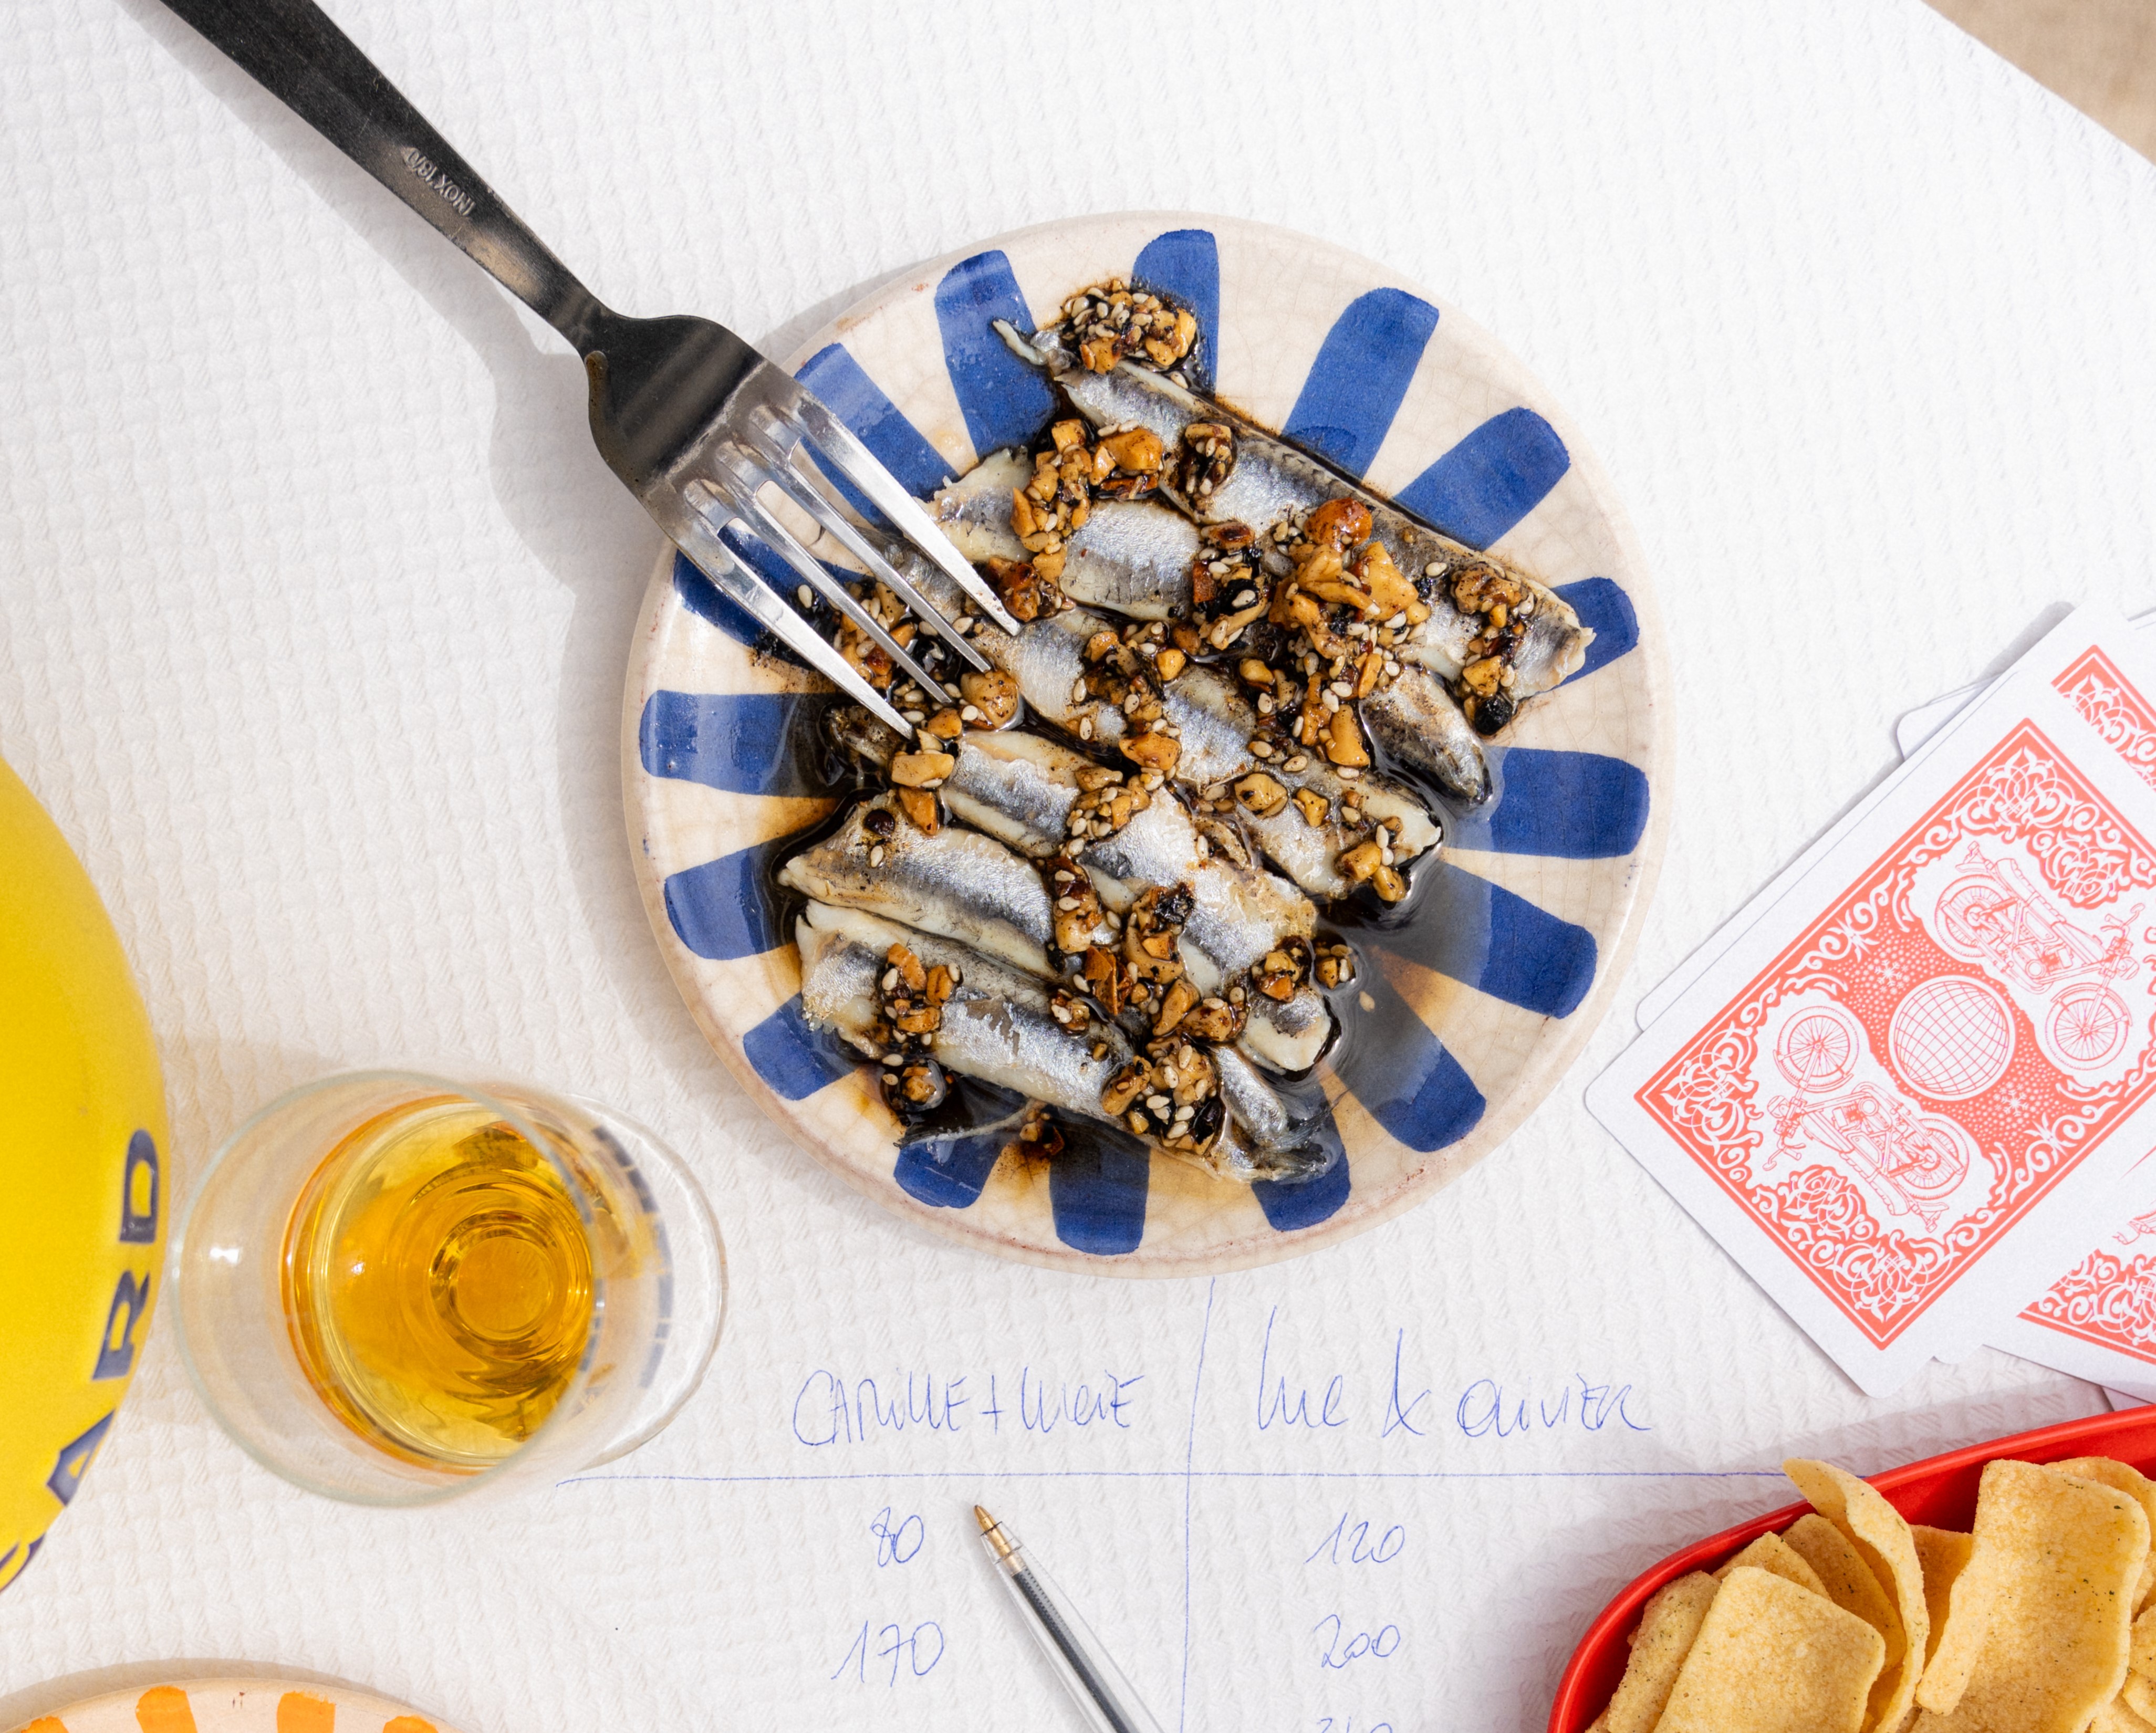 INOX 18/
ARD
CAMILLE + LUCIE / Luc & OLIVIER
80 120
170 200